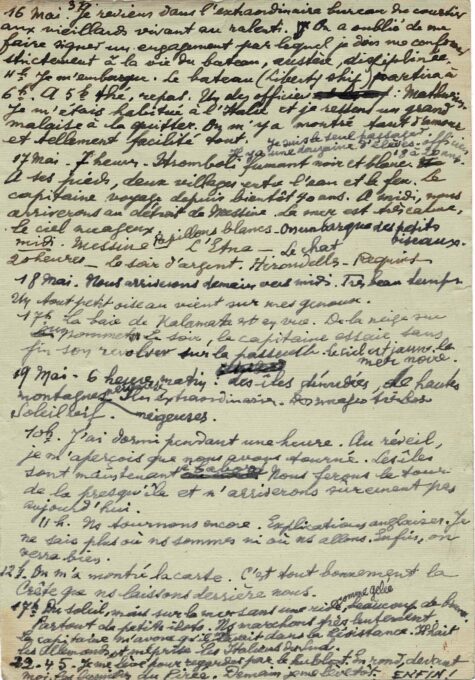 16 Mai. Je reviens dans l'extraordinaire bureau du courtier
aux vieillards vivant au ralenti. On a oublié de me
faire signer un engagement par lequel je dois me conformer
strictement à la vie du bateau, austère, disciplinée.
4h. Je m'embarque. Le bateau (liberty ship) partira à
6h. A 5h thé, repas. Un des officiers :
Je m'étais habitué à l'Italie et je ressens un grand
malaise à la quitter. On m'y a montré tant d'amour
et tellement facilité tout. Je suis le seul passager.
Il y a une douzaine d'élèves-officiers
17 Mai. 7 heures. Stromboli fumant noir et blanc.
A ses pieds, deux villages entre l'eau et le feu. Le
capitaine voyage depuis bientôt 40 ans. A midi, nous
arriverons au détroit de Messine. La mer est très calme,
le ciel nuageux. Papillons blancs. On embarque des petits
oiseaux.
midi. Messine - L'Etna - Le chat
20 heures - le soir d'argent. Hirondelles - Requins
18 Mai. Nous arriverons demain vers midi. Très beau temps.
Un tout petit oiseau vient sur mes genoux.
17h. La baie de Kalamata est en vue. De la neige sur
les sommets. Le soir, le capitaine essaie sans
fin son revolver sur la passerelle. Le ciel est jaune, la
mer noire.
19 Mai - 6 heures matin: des îles dénudées, de hautes
montagnes Iles extraordinaires. Des nuages
Soleil neigeuses.
10h. J'ai dormi pendant une heure. Au réveil,
je m'aperçois que nous avons tourné. Les îles
sont maintenant à babord. Nous ferons le tour
de la presqu'île et n'arriverons sûrement pas
aujourd'hui.
11h. Ns tournons encore. Explications anglaises. Je
ne sais plus où ns sommes ni où ns allons. Enfin, on
verra bien.
12h. On m'a montré la carte. C'est tout bonnement la
Crète que ns laissons derrière nous.
17h Du soleil, mais sur la mer sans une ride, comme gelée beaucoup de brume.
Partout de petits îlots. Ns marchons très lentement.
Le capitaine m'avoue qu'il était dans la Résistance. Il hait
les Allemands et méprise les Italiens
22.45. Je me lève pour regarder par le hublot. En rond, devant
moi, les lumières du Pirée. Demain je me lève tôt. ENFIN!